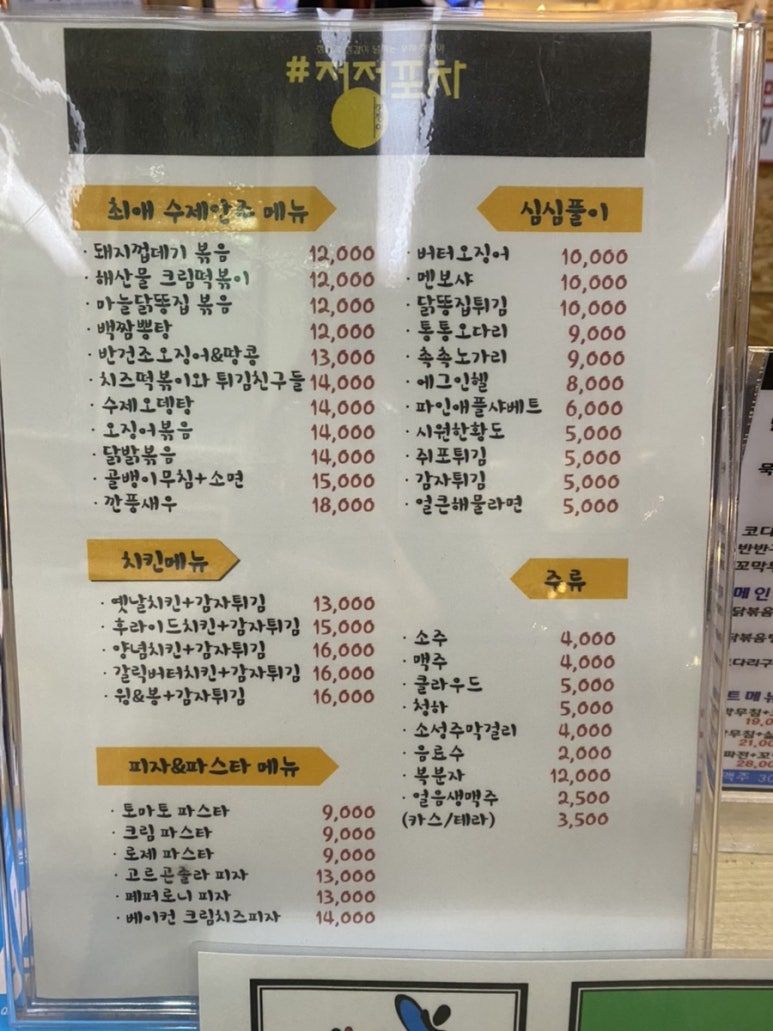 #저저포차
최애 수제안주 메뉴
· 돼지껍데기 볶음 12,000
· 해산물 크림떡볶이 12,000
· 마늘닭똥집 볶음 12,000
· 백짬뽕탕 12,000
· 반건조오징어&땅콩 13,000
· 치즈떡볶이와 튀김친구들 14,000
· 수제오뎅탕 14,000
· 오징어볶음 14,000
· 닭발볶음 14,000
· 골뱅이무침+소면 15,000
· 깐풍새우 18,000
치킨메뉴
· 옛날치킨+감자튀김 13,000
· 후라이드치킨+감자튀김 15,000
· 양념치킨+감자튀김 16,000
· 갈릭버터치킨+감자튀김 16,000
· 윙&봉+감자튀김 16,000
피자&파스타 메뉴
· 토마토 파스타 9,000
· 크림 파스타 9,000
· 로제 파스타 9,000
· 고르곤졸라 피자 13,000
· 페퍼로니 피자 13,000
· 베이컨 크림치즈피자 14,000
심심풀이
· 버터오징어 10,000
· 멘보샤 10,000
· 닭똥집튀김 10,000
· 통통오다리 9,000
· 촉촉노가리 9,000
· 에그인헬 8,000
· 파인애플샤베트 6,000
· 시원한황도 5,000
· 쥐포튀김 5,000
· 감자튀김 5,000
· 얼큰해물라면 5,000
주류
· 소주 4,000
· 맥주 4,000
· 클라우드 5,000
· 청하 5,000
· 소성주막걸리 4,000
· 음료수 2,000
· 복분자 12,000
· 얼음생맥주 2,500
(카스/테라) 3,500
코다
반반구
꼬막무
메인
닭볶음
닭볶음탕
다리구
트메뉴
19,0
무침+
21,00
파전+꼬
28,00
맥주 30